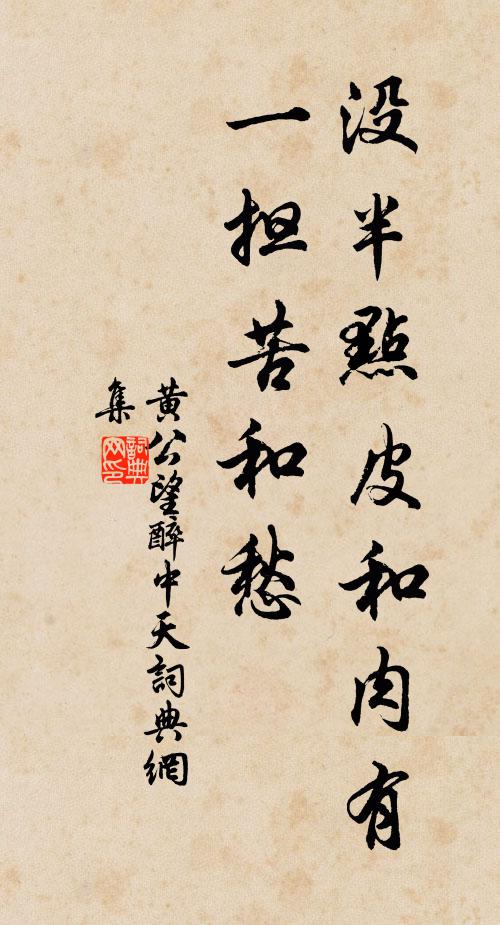 没半點皮和肉有
一担苦和愁
黄公望醉中天詞典網
集
詞典網印